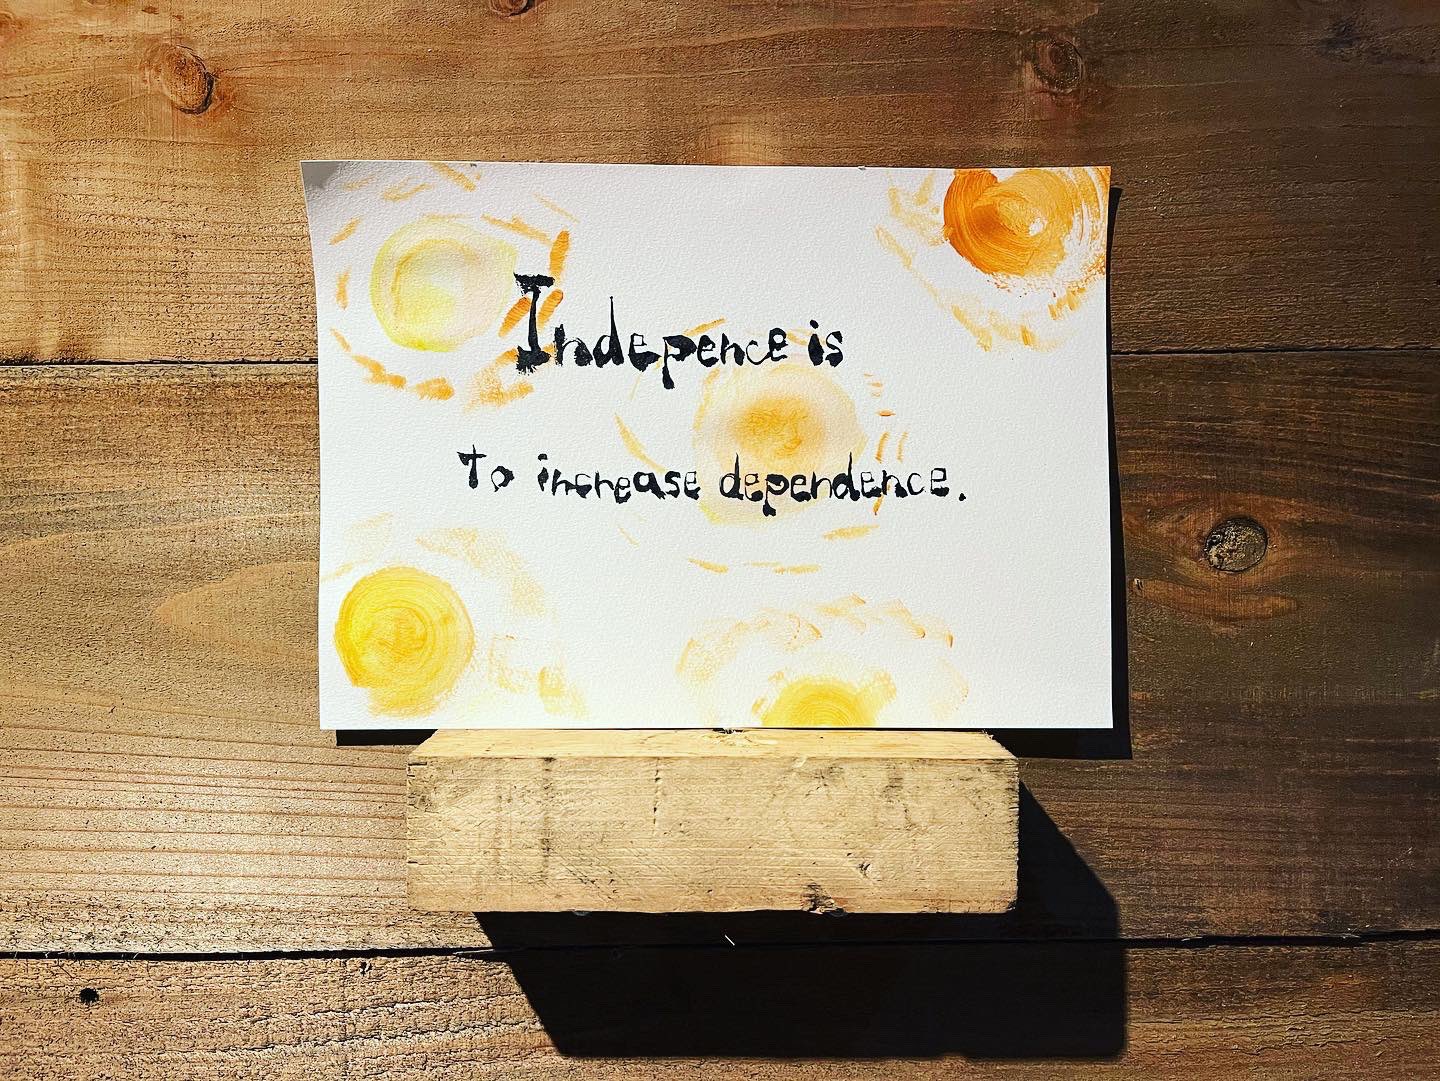 Indepence is
To increase dependence.